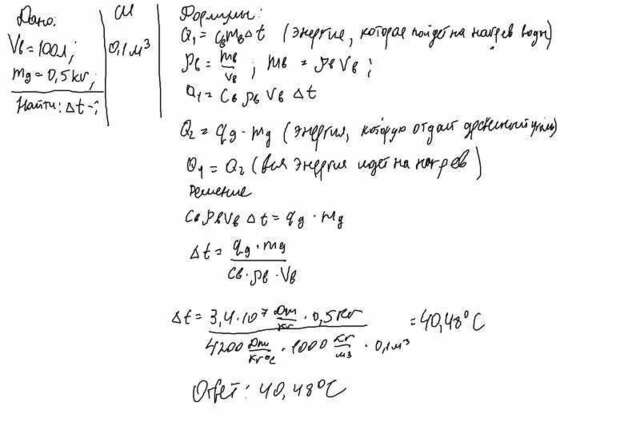 Дано:
Vв = 100л;
mд = 0,5кг;
Найти: Δt -;
СИ
0,1 м³
Формулы:
Q₁ = cвmвΔt (энергия, которая пойдет на нагрев воды)
ρв = mв/Vв ; mв = ρвVв;
Q₁ = Cв ρв Vв Δt
Q₂ = qд · mд (энергия, которую отдаст древесный уголь)
Q₁ = Q₂ (вся энергия идет на нагрев)
Решение
Cв ρв Vв Δt = qд · mд
Δt = qд · mд / Cв · ρв · Vв
Δt = 3,4·10⁷ Дж/кг · 0,5кг / 4200 Дж/кг°C · 1000 кг/м³ · 0,1м³ = 40,48°C
Ответ: 40,48°C